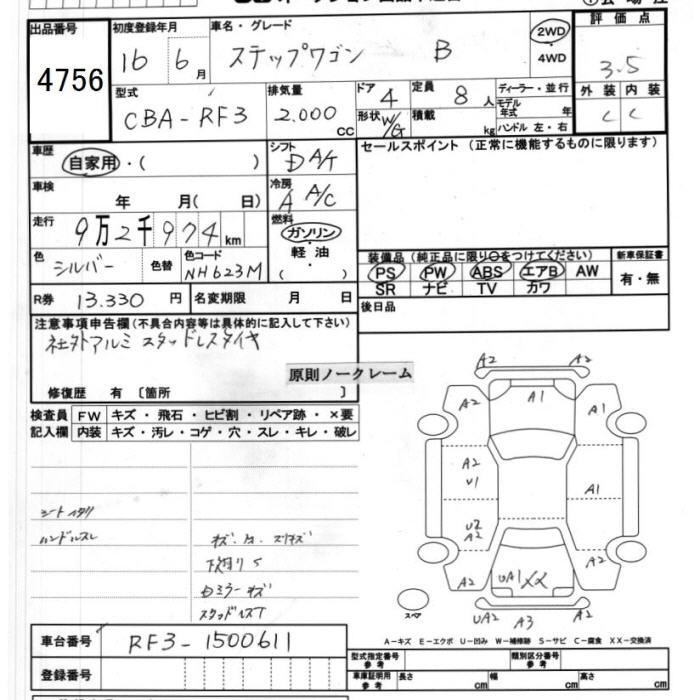 出品番号 初度登録年月 車名・グレード 評価点
4756 16 6月 ステップワゴン B 2WD 4WD 3.5
型式 排気量 ドア 定員 ディーラー・並行 外装 内装
CBA-RF3 2,000 CC 4 8人 モデル年式 年 C C
形状 W/G 積載 kg ハンドル 左・右
車歴 自家用・( ) シフト DA/T セールスポイント(正常に機能するものに限ります)
車検 年 月( 日) 冷房 A A/C
走行 9万2千974km 燃料 ガソリン・軽油・( )
色 シルバー 色替 色コード NH623M
装備品(純正品に限り○をつけてください) 新車保証書
PS PW ABS エアB AW 有・無
SR ナビ TV カワ
R券 13.330円 名変期限 月 日 後日品
注意事項申告欄(不具合内容等は具体的に記入して下さい)
社外アルミ スタッドレスタイヤ
原則ノークレーム
修復歴 有〔箇所 〕
検査員 FW キズ・飛石・ヒビ割・リペア跡・×要
記入欄 内装 キズ・汚レ・コゲ・穴・スレ・キレ・破レ
A2 A2
A2 A1 A1
A2
U1 A1
U2
A2
A2 UA1 XX A2
UA2 A3 A2
スペア
ハンドルスレ
下廻りS
スタッドレスT
A−キズ E−エクボ U−凹み W−補修跡 S−サビ C−腐食 XX−交換済
車台番号 RF3-1500611
型式指定番号 参考 類別区分番号 参考
登録番号 車庫証明用 参考 長さ cm 幅 cm 高さ cm